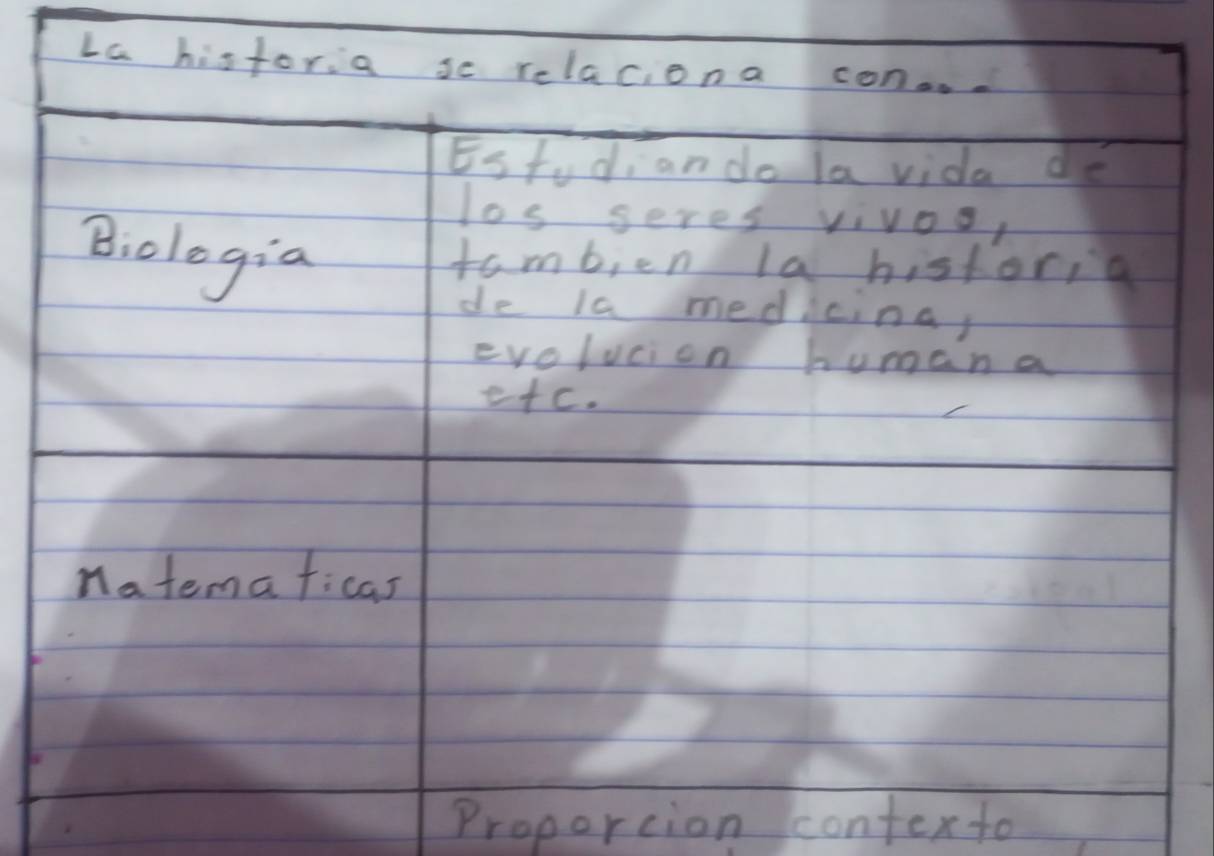 La historia se relaciona con...
Estudiando la vida de
los seres vivos,
Biología
tambien la historia
de la medicina,
evolucion humana
etc.
Matematicas
Proporcion contexto